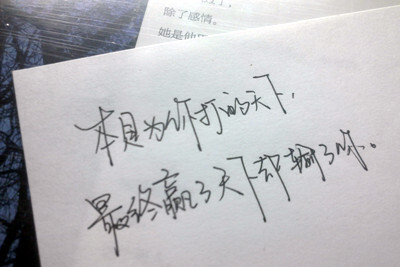 除了感情。
她是他
本是为你打的天下,
最终赢了天下却输了你。